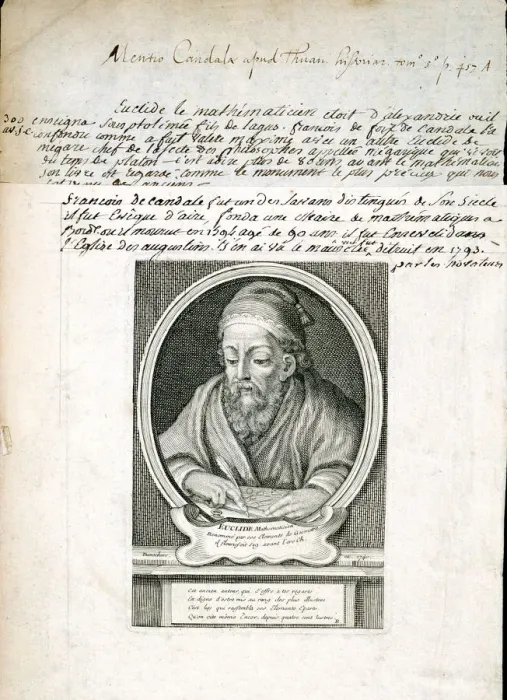 Mentio Candalæ apud Thuan. historiar. tom° 5° p. 457 A
Euclide le mathématicien étoit d'alexandrie ou il
300 enseigna sous ptolemée fils de lagus. francois de foix de candale l'a
av. J.C. confondu comme a fait valere maxime avec un autre Euclide de
megare chef de la secte des philosophes appellée mégarique qui vivoit
du tems de platon c'est a dire plus de 80 ans avant le mathématicien
son livre est regardé comme le monument le plus précieux qui nous
francois de candale fut un des savans distingués de son siecle
il fut Evêque d'aire, fonda une chaire de mathématiques a
Bordeaux il mourut en 1594 agé de 90 ans il fut Enseveli dans
l'Eglise des augustins
détruit en 1793.
par les novateurs
EUCLIDE Mathematicien
Renommé par ses Elements de Geometrie
il fleurissoit 509 avant l'ere Ch.
Cet ancien auteur qui s'offre a tes regards
Est digne d'estre mis au rang des plus illustres
C'est luy qui rassembla ces Elements Epars
Qu'on cite même Encor depuis quatre cent lustres.